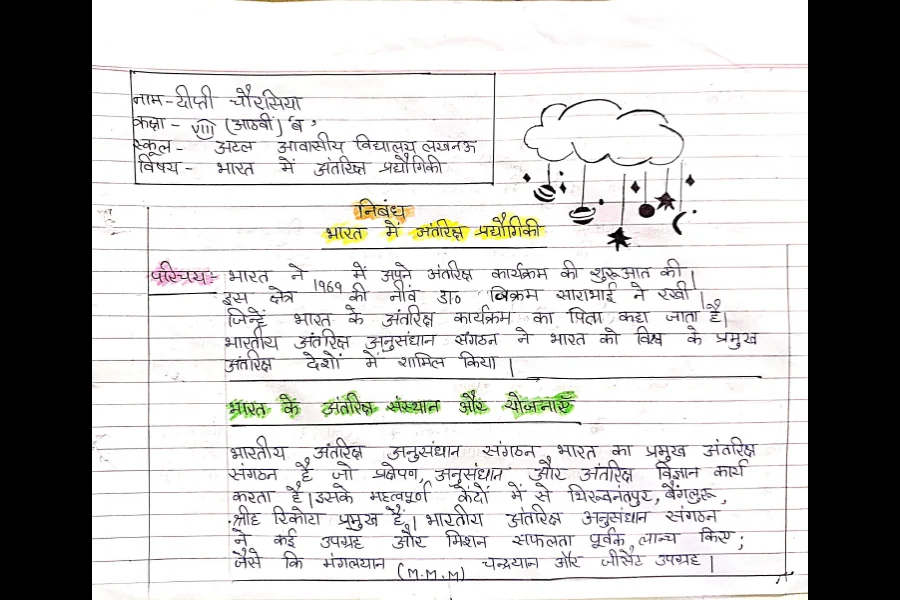 नाम - दीप्ती चौरसिया
कक्षा - VIII (आठवीं) 'ब'
स्कूल - अटल आवासीय विद्यालय लखनऊ
विषय - भारत में अंतरिक्ष प्रद्यौगिकी
निबंध
भारत में अंतरिक्ष प्रद्यौगिकी
परिचय:- भारत ने 1969 में अपने अंतरिक्ष कार्यक्रम की शुरूआत की।
इस क्षेत्र की नींव डा० विक्रम साराभाई ने रखी।
जिन्हें भारत के अंतरिक्ष कार्यक्रम का पिता कहा जाता है।
भारतीय अंतरिक्ष अनुसंधान संगठन ने भारत को विश्व के प्रमुख
अंतरिक्ष देशों में शामिल किया।
भारत के अंतरिक्ष संस्थान और योजनाएँ
भारतीय अंतरिक्ष अनुसंधान संगठन भारत का प्रमुख अंतरिक्ष
संगठन है जो प्रक्षेपण, अनुसंधान और अंतरिक्ष विज्ञान कार्य
करता है। इसके महत्वपूर्ण केंद्रों में से थिरूवनंतपुर, बैंगलुरू,
श्रीहरिकोटा प्रमुख हैं। भारतीय अंतरिक्ष अनुसंधान संगठन
ने कई उपग्रह और मिशन सफलता पूर्वक लान्च किए;
जैसे कि मंगलयान (M.M.M) चन्द्रयान और जीसैट उपग्रह।